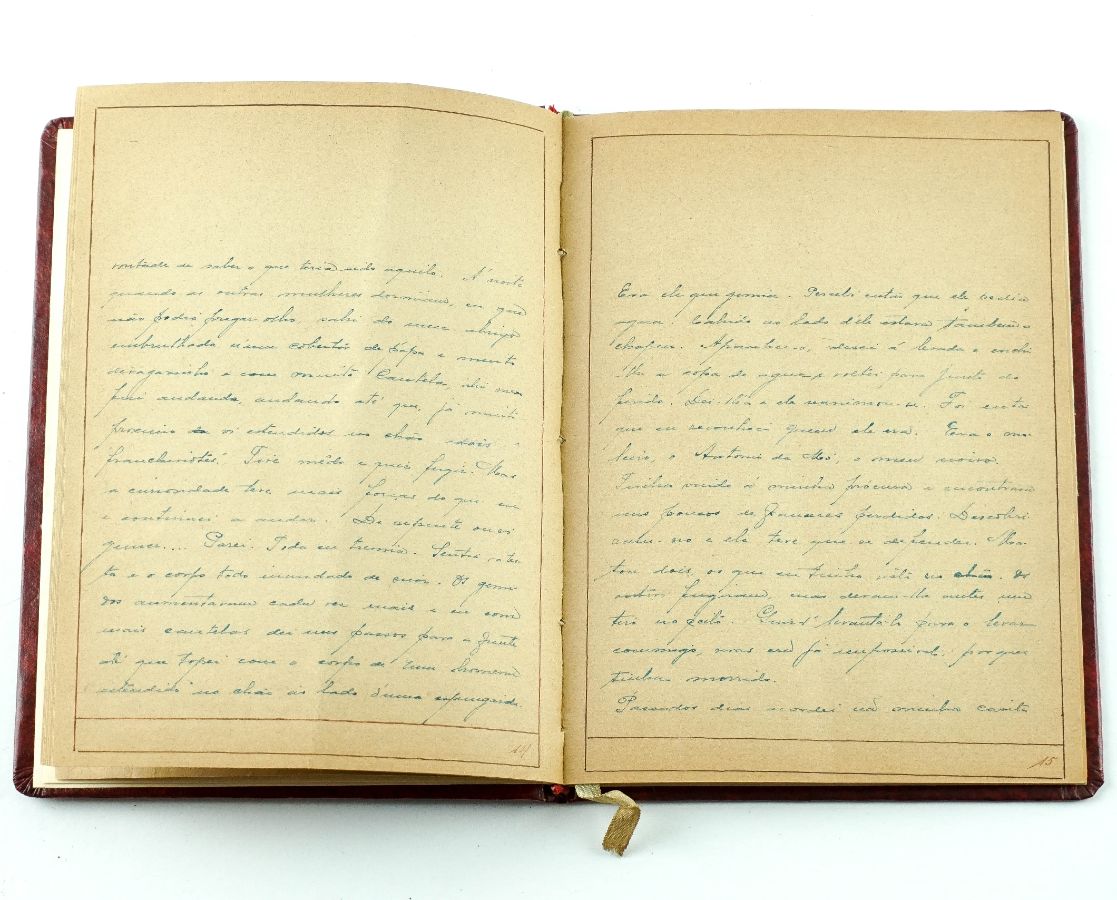 vontade de saber o que teria sido aquilo. Á noite
quando as outras mulheres dormiam, eu que
não podia pregar olho, sahi do meu abrigo
embrulhada n'uma cobertor de papa e muito
devagarinho e com muita cautela, ali me
fui andando, andando até que, já muito
proximo vi estendidos no chão dois
"franchinotes". Tive mêdo e quis fugir. Mas
a curiosidade teve mais forças do que eu
e continuei a andar. De repente ouvi
gemer.... Parei. Toda eu tremia. Sentia a tes-
ta e o corpo todo inundado de suor. Os gemi-
dos aumentavam cada vez mais e eu com
mais cautelas dei uns passos para a frente
até que topei com o corpo de um homem
estendido no chão ao lado d'uma espingarda.
14
Era ele que gemia. Percebi então que ele pedia
agua. Cahido ao lado d'ele estava tambem o
chapeu. Apanhei-o, desci á levada e enchi
a copa de agua e voltei para junto do
ferido. Dei-lh'a e ele reanimou-se. Foi então
que eu reconheci quem ele era. Era o mo-
leiro, o Antonio da Mó, o meu noivo.
Tinha vindo á minha procura e encontrara
uns poucos de franceses perdidos. Descobri-
ram-no e ele teve que se defender. Ma-
tou dois, os que eu tinha visto no chão. Os
outros fugiram, mas deram-lhe antes um
tiro no peito. Quis levanta-lo para o levar
commigo, mas era já impossivel: porque
tinha morrido.
Passados dias acordei na minha casita
15